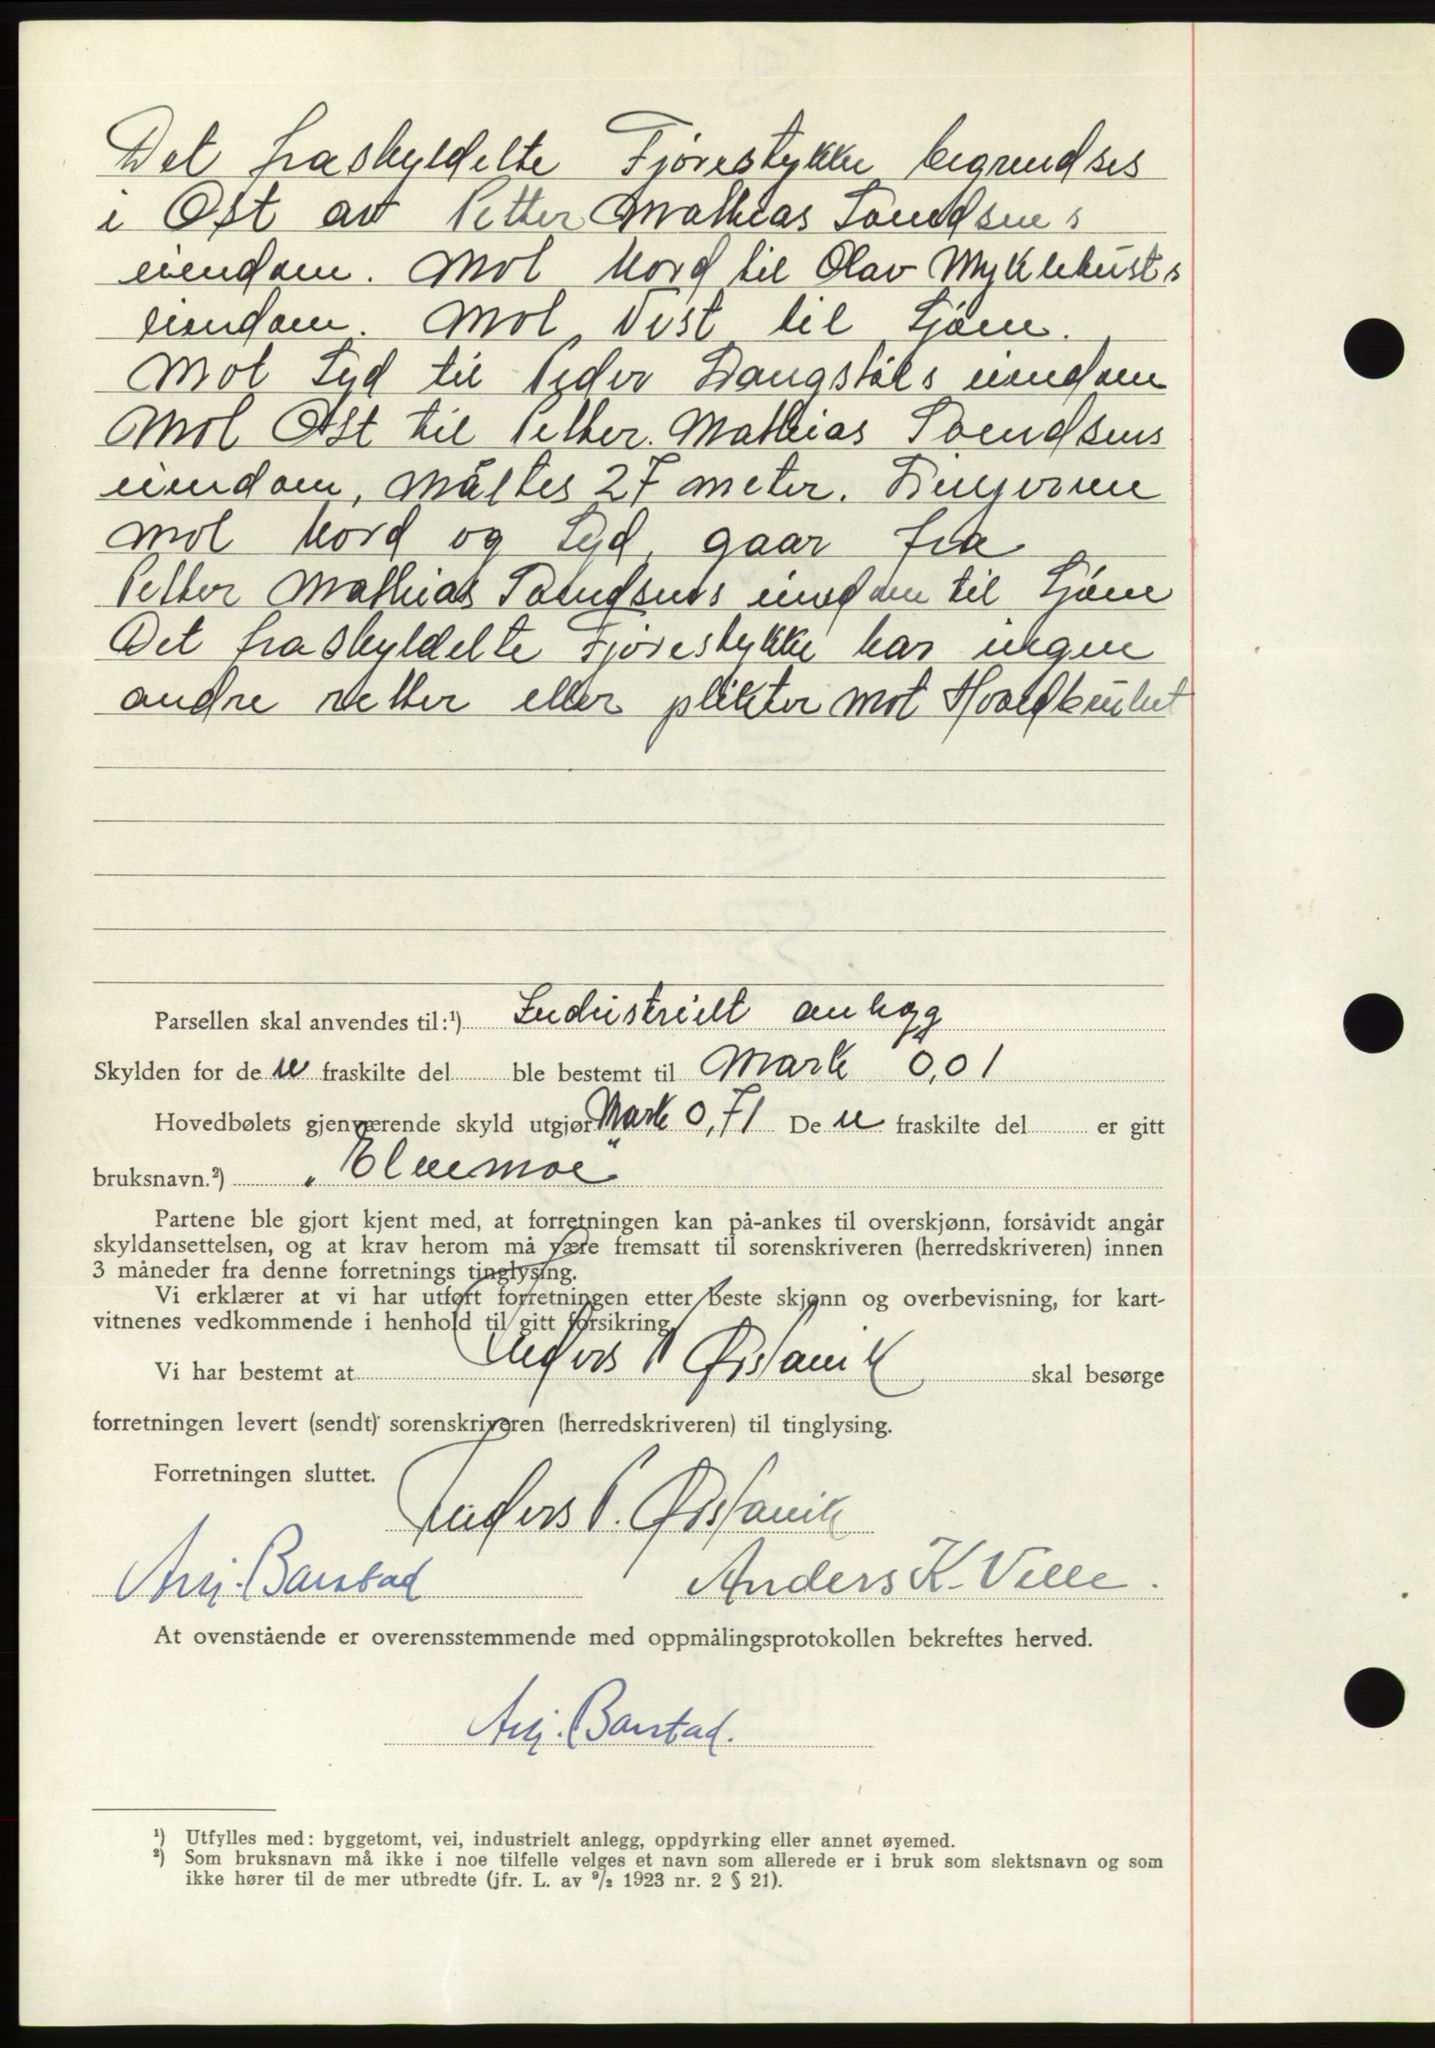 Det fraskyldelte Fjørestykke begrendses
i Øst av Petter Mathias Svendsens
eiendom. Mot Nord til Olav Myklebusts
eiendom. Mot Vest til Sjøen.
Mot Syd til Peder eiendom
Mot Øst til Petter Mathias Svendsens
eiendom, måltes 27 meter. Linjerne
mot Nord og Syd, gaar fra
Petter Mathias Svendsens eiendom til Sjøen
Det fraskyldelte Fjørestykke har ingen
andre retter eller plikter mot Hovedbruket
Parsellen skal anvendes til:¹) Industrielt anlegg
Skylden for den fraskilte del ble bestemt til Mark 0,01
Hovedbølets gjenværende skyld utgjør Mark 0,71 Den fraskilte del er gitt
bruksnavn.²) „Elvemoe"
Partene ble gjort kjent med, at forretningen kan på-ankes til overskjønn, forsåvidt angår
skyldansettelsen, og at krav herom må være fremsatt til sorenskriveren (herredskriveren) innen
3 måneder fra denne forretnings tinglysing.
Vi erklærer at vi har utført forretningen etter beste skjønn og overbevisning, for kart-
vitnenes vedkommende i henhold til gitt forsikring.
Vi har bestemt at Anders P Ørstavik skal besørge
forretningen levert (sendt) sorenskriveren (herredskriveren) til tinglysing.
Forretningen sluttet.
Anders P. Ørstavik
Barstad Anders K. Velle.
At ovenstående er overensstemmende med oppmålingsprotokollen bekreftes herved.
Barstad.
¹) Utfylles med: byggetomt, vei, industrielt anlegg, oppdyrking eller annet øyemed.
²) Som bruksnavn må ikke i noe tilfelle velges et navn som allerede er i bruk som slektsnavn og som
ikke hører til de mer utbredte (jfr. L. av ⁹/₂ 1923 nr. 2 § 21).